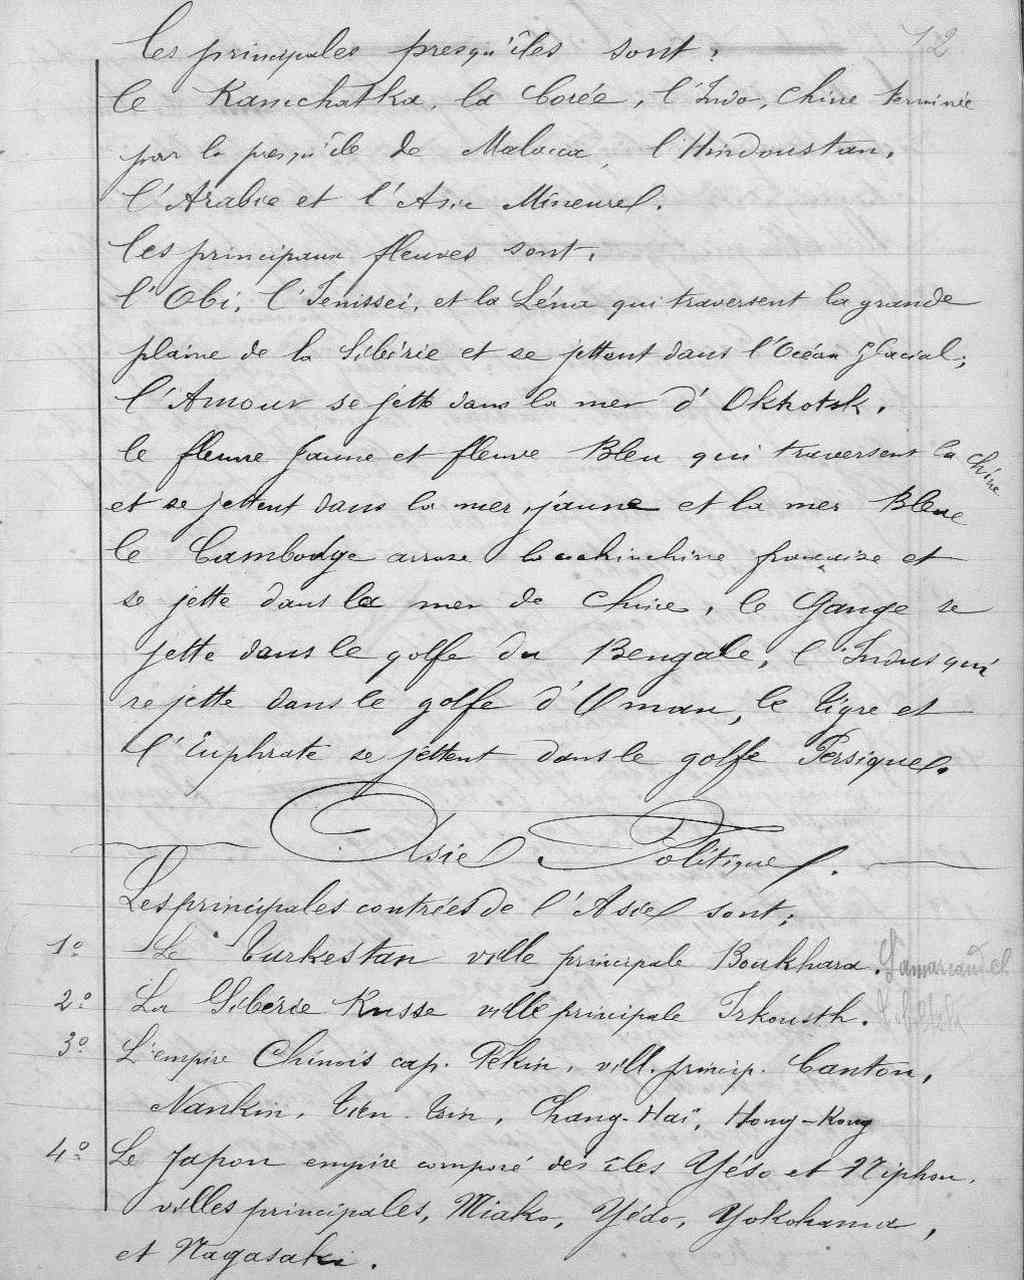 12
Les principales presqu'îles sont,
le Kamchatka, la Corée, l'Indo, Chine terminée
par la presqu'île de Malacca, l'Hindoustan,
l'Arabie et l'Asie Mineure.
Les principaux fleuves sont,
l'Obi, l'Ienisseï, et la Léna qui traversent la grande
plaine de la Sibérie et se jettent dans l'Océan Glacial;
l'Amour se jette dans la mer d'Okhotsk,
le fleuve Jaune et fleuve Bleu qui traversent la Chine
et se jettent dans la mer jaune et la mer Bleue
le Cambodge arrose la cochinchine française et
se jette dans la mer de Chine, le Gange se
jette dans le golfe du Bengale, l'Indus qui
se jette dans le golfe d'Oman, le Tigre et
l'Euphrate se jettent dans le golfe Persique.
Asie Politique.
Les principales contrées de l'Asie sont;
1º Le Turkestan ville principale Boukhara. Samarcande
2º La Sibérie Russe ville principale Irkousth.
3º L'empire Chinois cap. Pékin, vill. princip. Canton,
Nankin, Tien-Tsin, Chang-Haï, Hong-Kong
4º Le Japon empire composé des îles Yéso et Niphon,
villes principales, Miako, Yédo, Yokohama,
et Nagasaki.